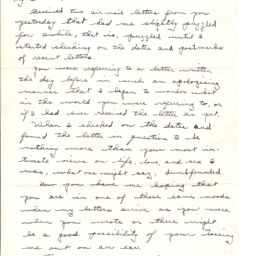 my
Received two airmail letters from you
yesterday that had me slightly puzzled
for awhile, that is, puzzled until I
started checking on the dates and postmarks
of recent letters.
You were referring to a letter written
the day before in such an apologizing
manner that I began to wonder what
in the world you were referring to, or
if I had ever received the letter as yet.
When I checked on the dates and
found the letter in question to be
nothing more than your most in-
timate views on life, love, and sex I
was, what one might say, dumbfounded.
Now you have me hoping that
you are in one of those same moods
when my letters arrive as you were
when you wrote or there might
be a good possibility of your tossing
me out on an ear.